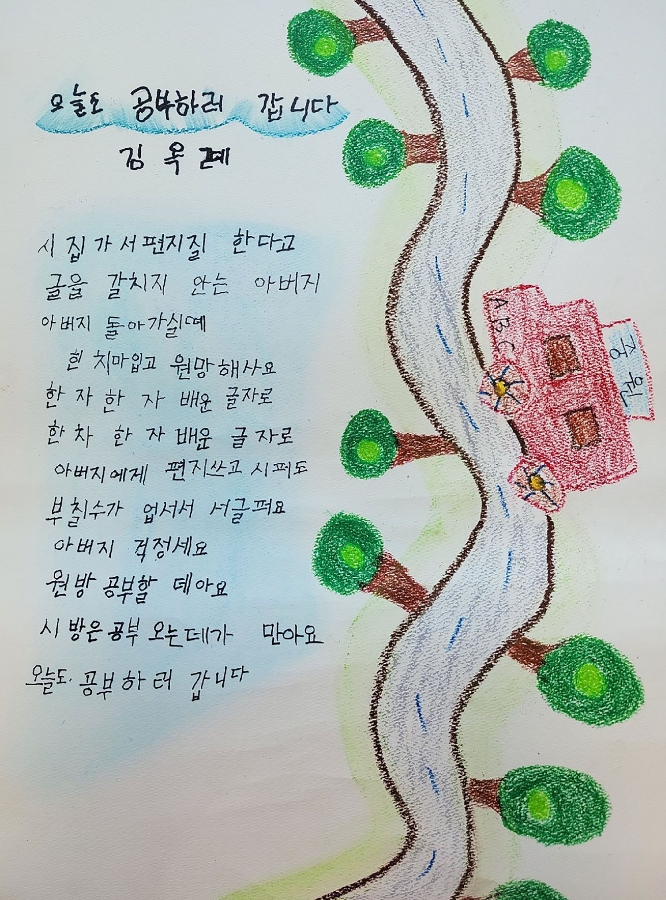 오늘도 공부하러 갑니다
김옥례
시집가서편지질 한다고
글을 갈치지 안는 아버지
아버지 돌아가실떼
힌 치마입고 원망해사요
한자한자 배운 글자로
한자 한자 배운 글자로
아버지에게 편지쓰고 시퍼도
부칠수가 업서서 서글퍼요
아버지 걱정세요
원방 공부할 데아요
시방은공부 오는데가 만아요
오늘도. 공부하러 갑니다
ABC
중원